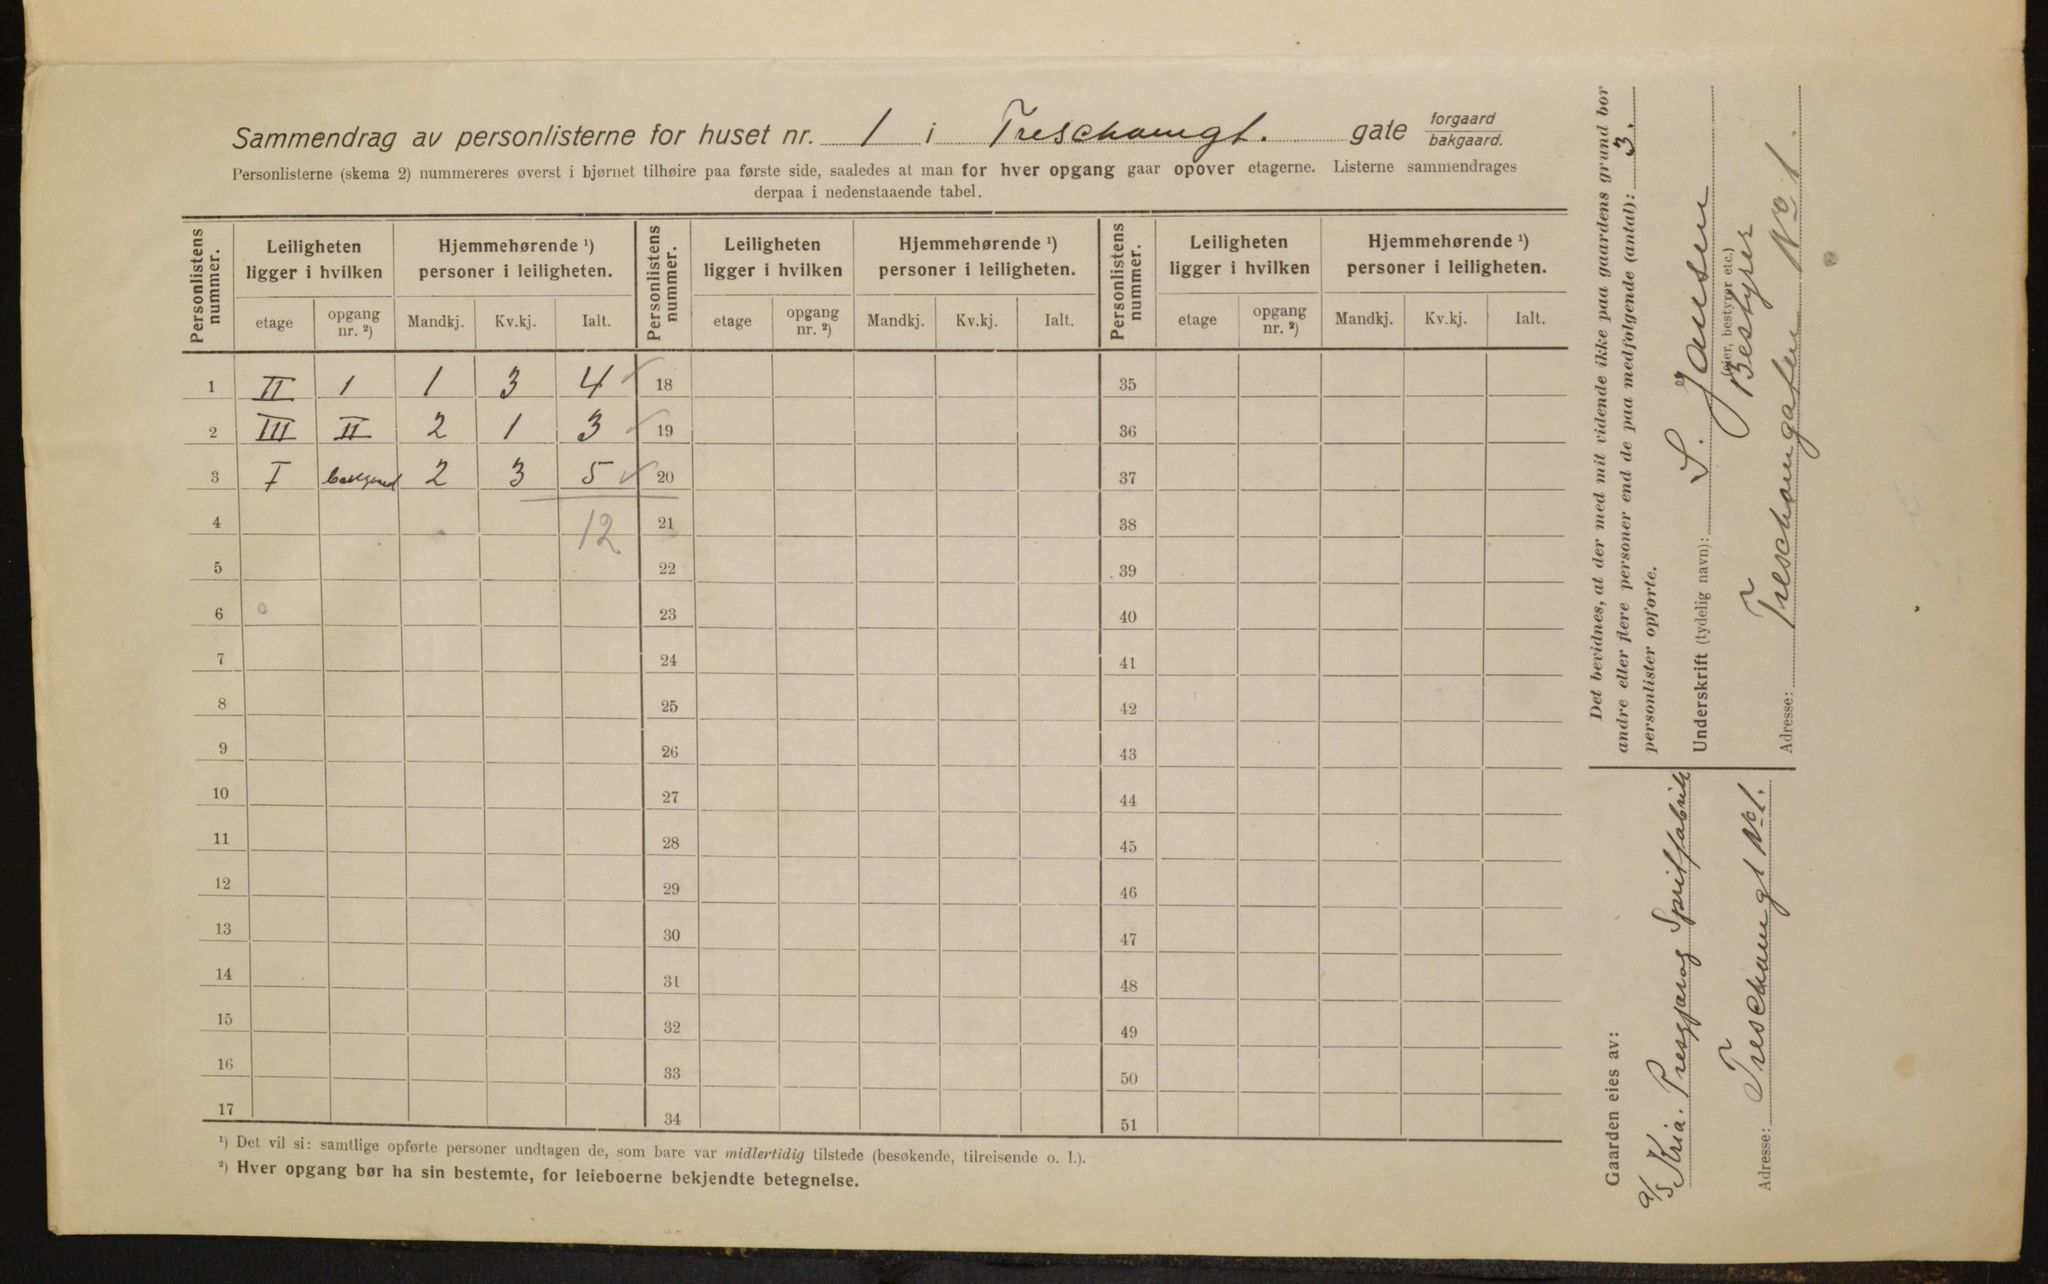 Sammendrag av personlisterne for huset nr. 1 i Treschowsgt. gate forgaard/bakgaard.
Personlisterne (skema 2) nummereres øverst i hjørnet tilhøire paa første side, saaledes at man for hver opgang gaar opover etagerne. Listerne sammendrages
derpaa i nedenstaaende tabel.
Personlistens nummer. Leiligheten ligger i hvilken Hjemmehørende ¹) personer i leiligheten. Personlistens nummer. Leiligheten ligger i hvilken Hjemmehørende ¹) personer i leiligheten. Personlistens nummer. Leiligheten ligger i hvilken Hjemmehørende ¹) personer i leiligheten.
etage opgang nr. ²) Mandkj. Kv.kj. Ialt. etage opgang nr. ²) Mandkj. Kv.kj. Ialt. etage opgang nr. ²) Mandkj. Kv.kj. Ialt.
1 II 1 1 3 4 ✓ 18 35
2 III II 2 1 3 ✓ 19 36
3 I bakgaard 2 3 5 ✓ 20 37
4 12 21 38
5 22 39
6 23 40
7 24 41
8 25 42
9 26 43
10 27 44
11 28 45
12 29 46
13 30 47
14 31 48
15 32 49
16 33 50
17 34 51
¹) Det vil si: samtlige opførte personer undtagen de, som bare var midlertidig tilstede (besøkende, tilreisende o. l.).
²) Hver opgang bør ha sin bestemte, for leieboerne bekjendte betegnelse.
Det bevidnes, at der med mit vidende ikke paa gaardens grund bor
andre eller flere personer end de paa medfølgende (antal): 3.
personlister opførte.
Underskrift (tydelig navn): S. Jansen
(eier, bestyrer etc.)
Bestyrer
Adresse: Treschowsgaten No 1.
Gaarden eies av:
A/S Kria. Presgjær og Spritfabrik
Adresse: Treschowsgt No 1.